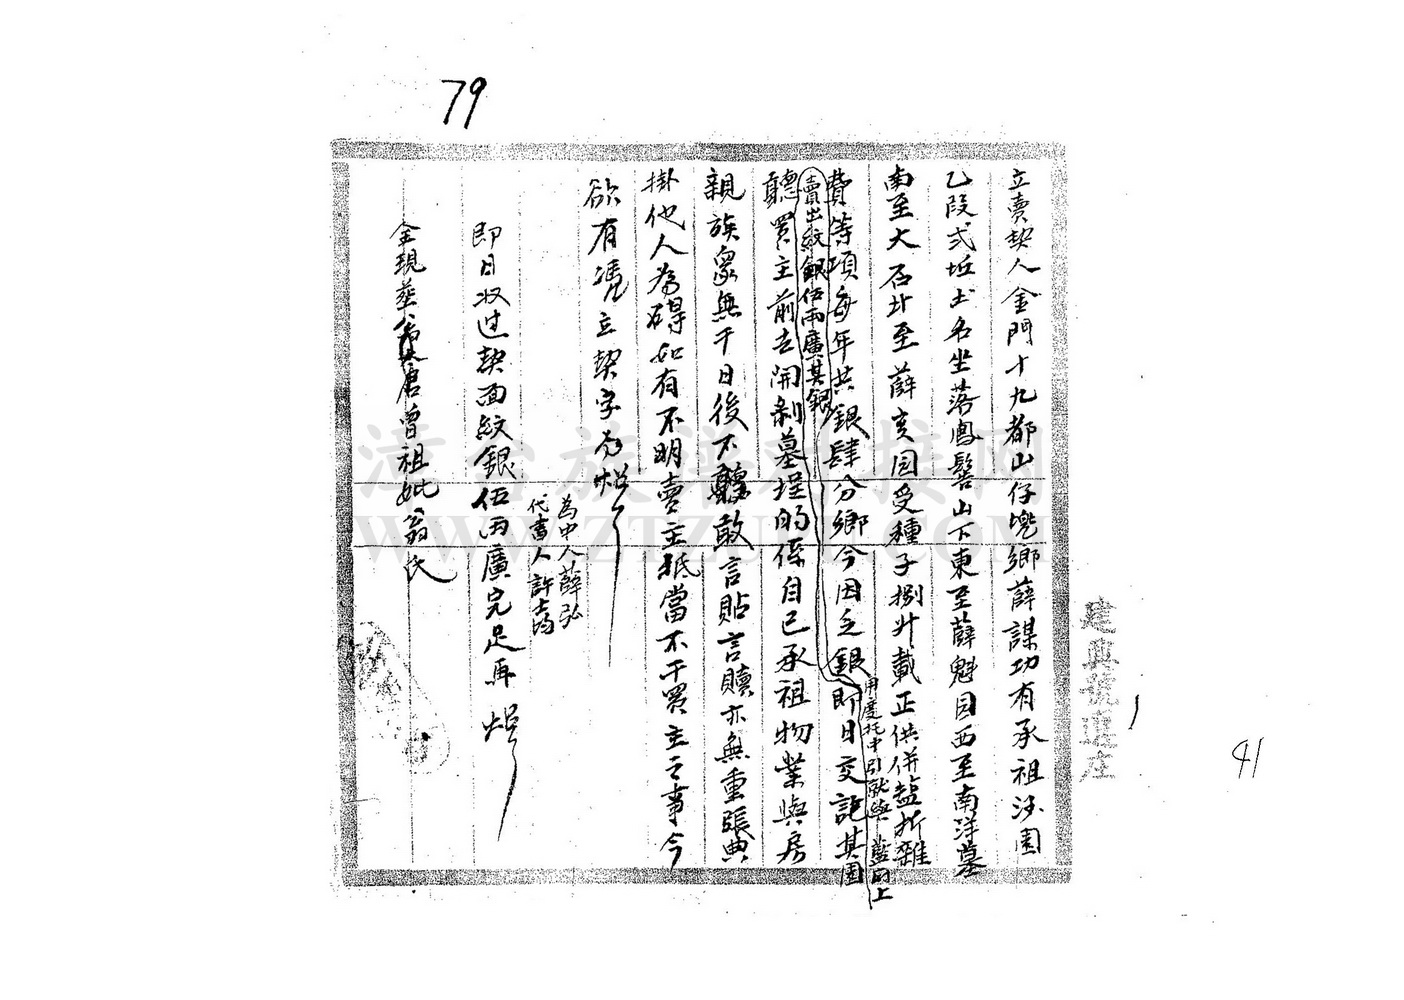 79
立賣契人金門十九都山仔兠鄉薛謀功有承祖沙園
乙段弍坵土名坐落鳳髻山下東至薛魁园西至南洋墓
南至大石北至薛亥园受種子捌升載正供併盐折雜
費等項每年共銀肆分鄉今因乏銀即日交訖其園
用度托中引就與 藍府上
賣出紋銀伍兩廣其銀
聽買主前去開剝墓埕的係自己承祖物業與房
親族衆無干日後不敢言貼言贖亦無重張典
掛他人為碍如有不明賣主抵當不干買主之事今
欲有凴立契字為炤
為中人薛弘
代書人許士
即日收过契面紋銀伍兩廣完足再炤
全現塟 君曾祖妣翁氏
建興號選庄
41
漳台族谱对接网
WWW.ZTZUPU.COM